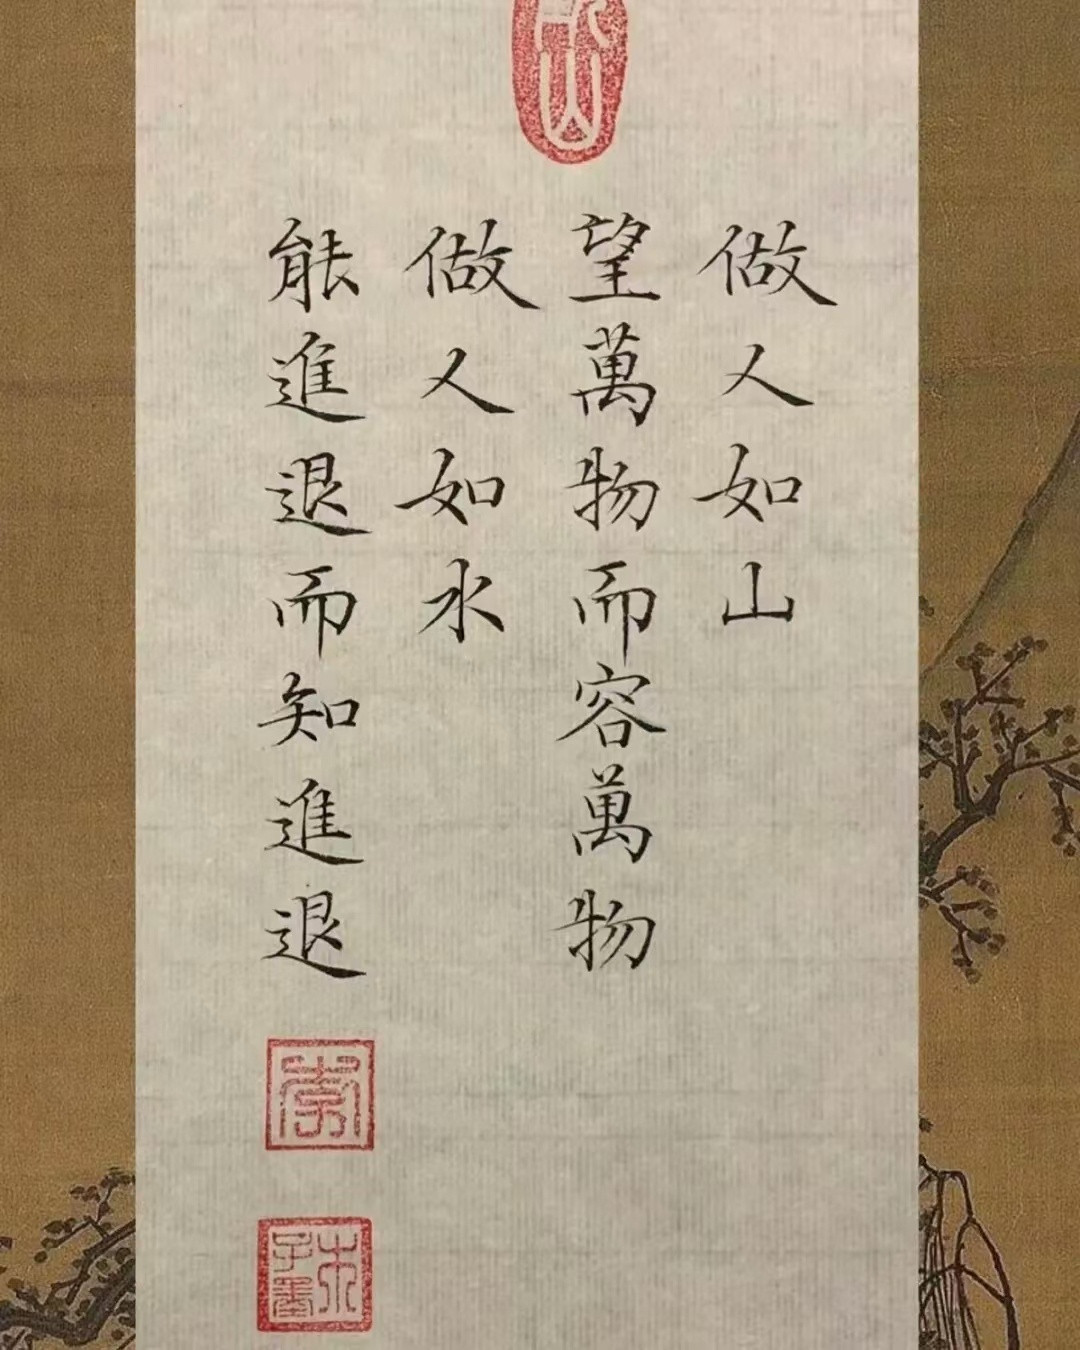 做人如山
望萬物而容萬物
做人如水
能進退而知進退